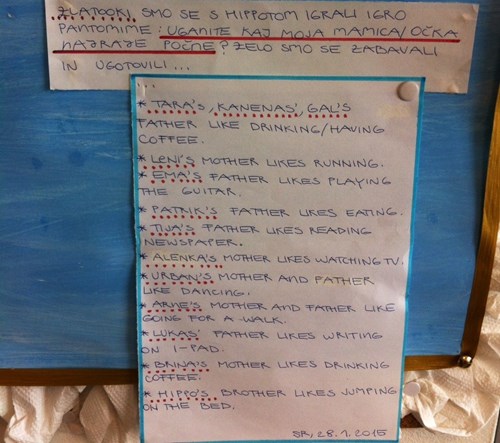 ZLATOOKI, SMO SE S HIPPOTOM IGRALI IGRO
PANTOMIME: UGANITE KAJ MOJA MAMICA/OČKA
NAJRAJE POČNE? ZELO SMO SE ZABAVALI
IN UGOTOVILI...
* TARA'S, KANENAS', GAL'S
FATHER LIKE DRINKING/HAVING
COFFEE.
* LENI'S MOTHER LIKES RUNNING.
* EMA'S FATHER LIKES PLAYING
THE GUITAR.
* PATRIK'S FATHER LIKES EATING.
* TIJA'S FATHER LIKES READING
NEWSPAPER.
* ALENKA'S MOTHER LIKES WATCHING TV.
* URBAN'S MOTHER AND FATHER
LIKE DANCING.
* ARNE'S MOTHER AND FATHER LIKE
GOING FOR A WALK.
* LUKAS' FATHER LIKES WRITING
ON I-PAD.
* BRINA'S MOTHER LIKES DRINKING
COFFEE.
* HIPPO'S BROTHER LIKES JUMPING
ON THE BED.
SR, 28.1.2015